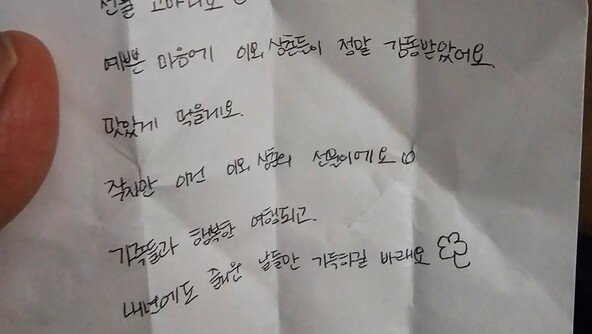 선물 고마워요
예쁜 마음에 이모, 삼촌들이 정말 감동받았어요
맛있게 먹을게요.
작지만 이건 이모, 삼촌의 선물이에요
가족들과 행복한 여행되고.
내년에도 즐거운 날들만 가득하길 바래요